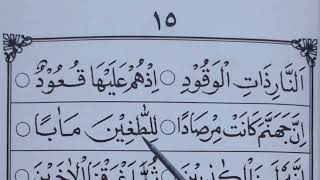 ١٥
اَلنَّارِ ذَاتِ الْوَقُوْدِ ○ اِذْهُمْ عَلَيْهَا قُعُوْدٌ ○
اِنَّ جَهَنَّمَ كَانَتْ مِرْصَادًا ○ لِلطّٰغِيْنَ مَاٰبًا ○
ثُمَّ اَغْرَقْنَا الْاٰخَرِيْنَ